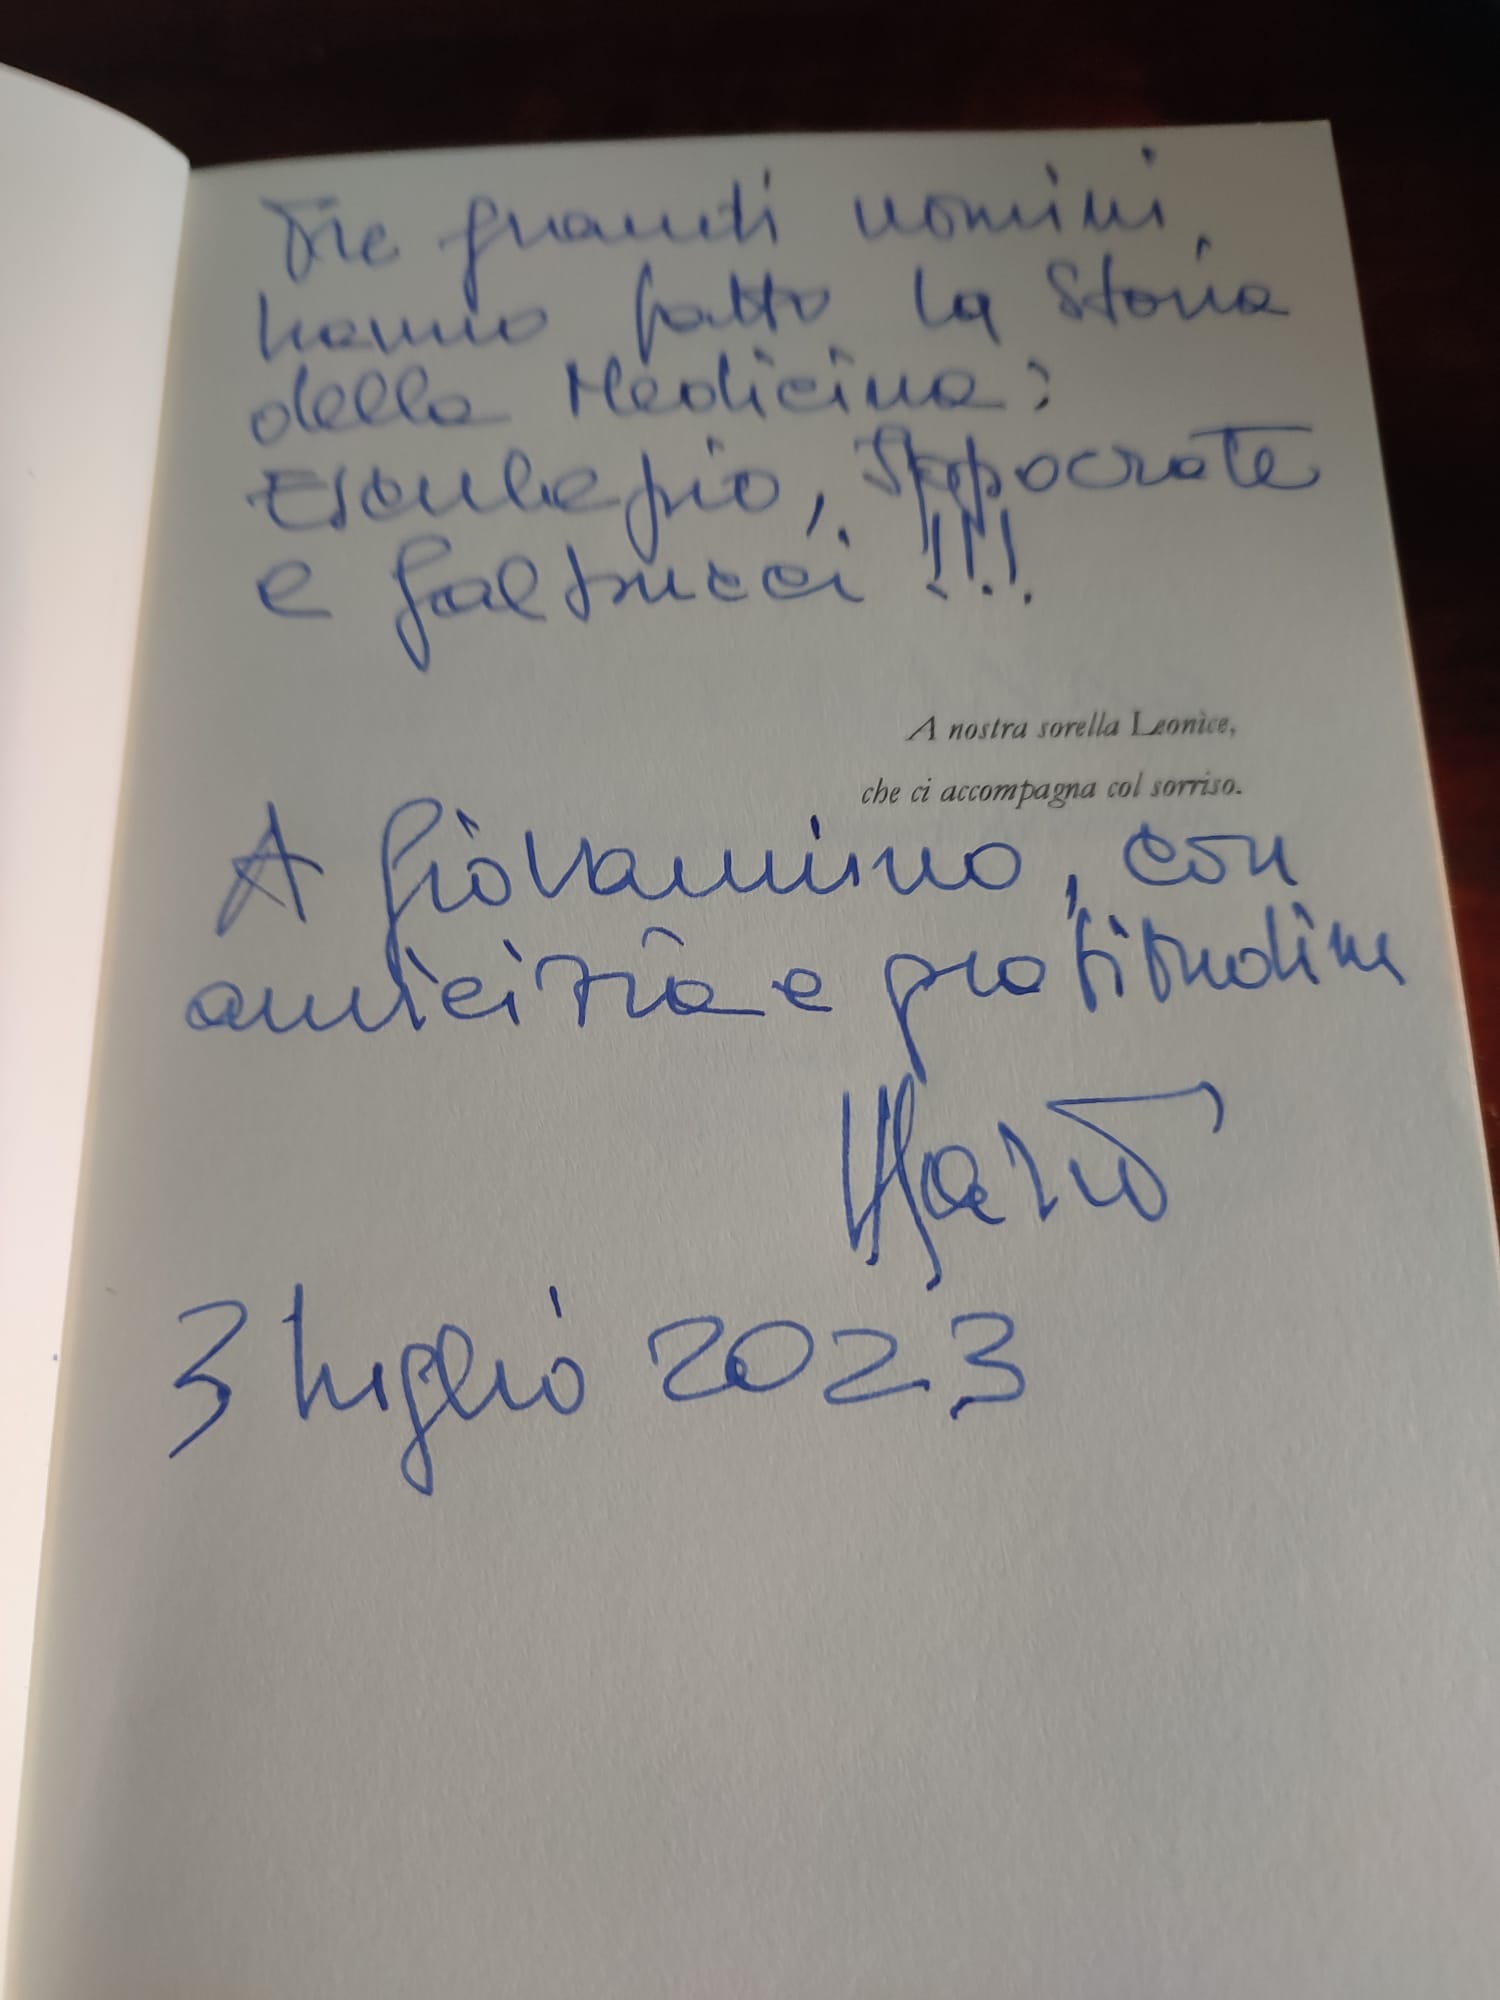 Tre grandi uomini
hanno fatto la Storia
della Medicina:
Esculapio, Ippocrate
e Galtrucci!!!
A nostra sorella Leonice,
che ci accompagna col sorriso.
A Giovannino, con
amicizia e gratitudine
Mario
3 luglio 2023